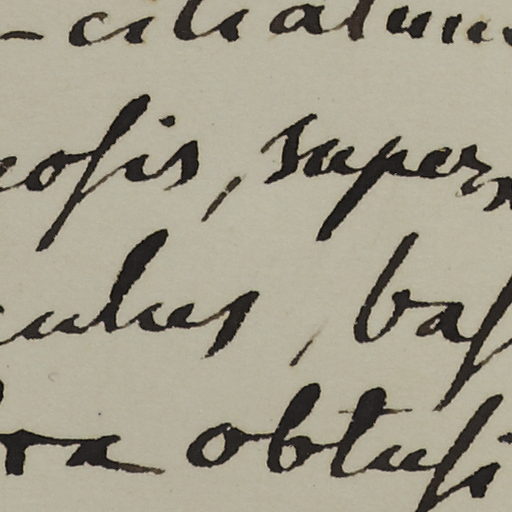 -ciliatum
eosis, super
culus, bas
bra obtusi